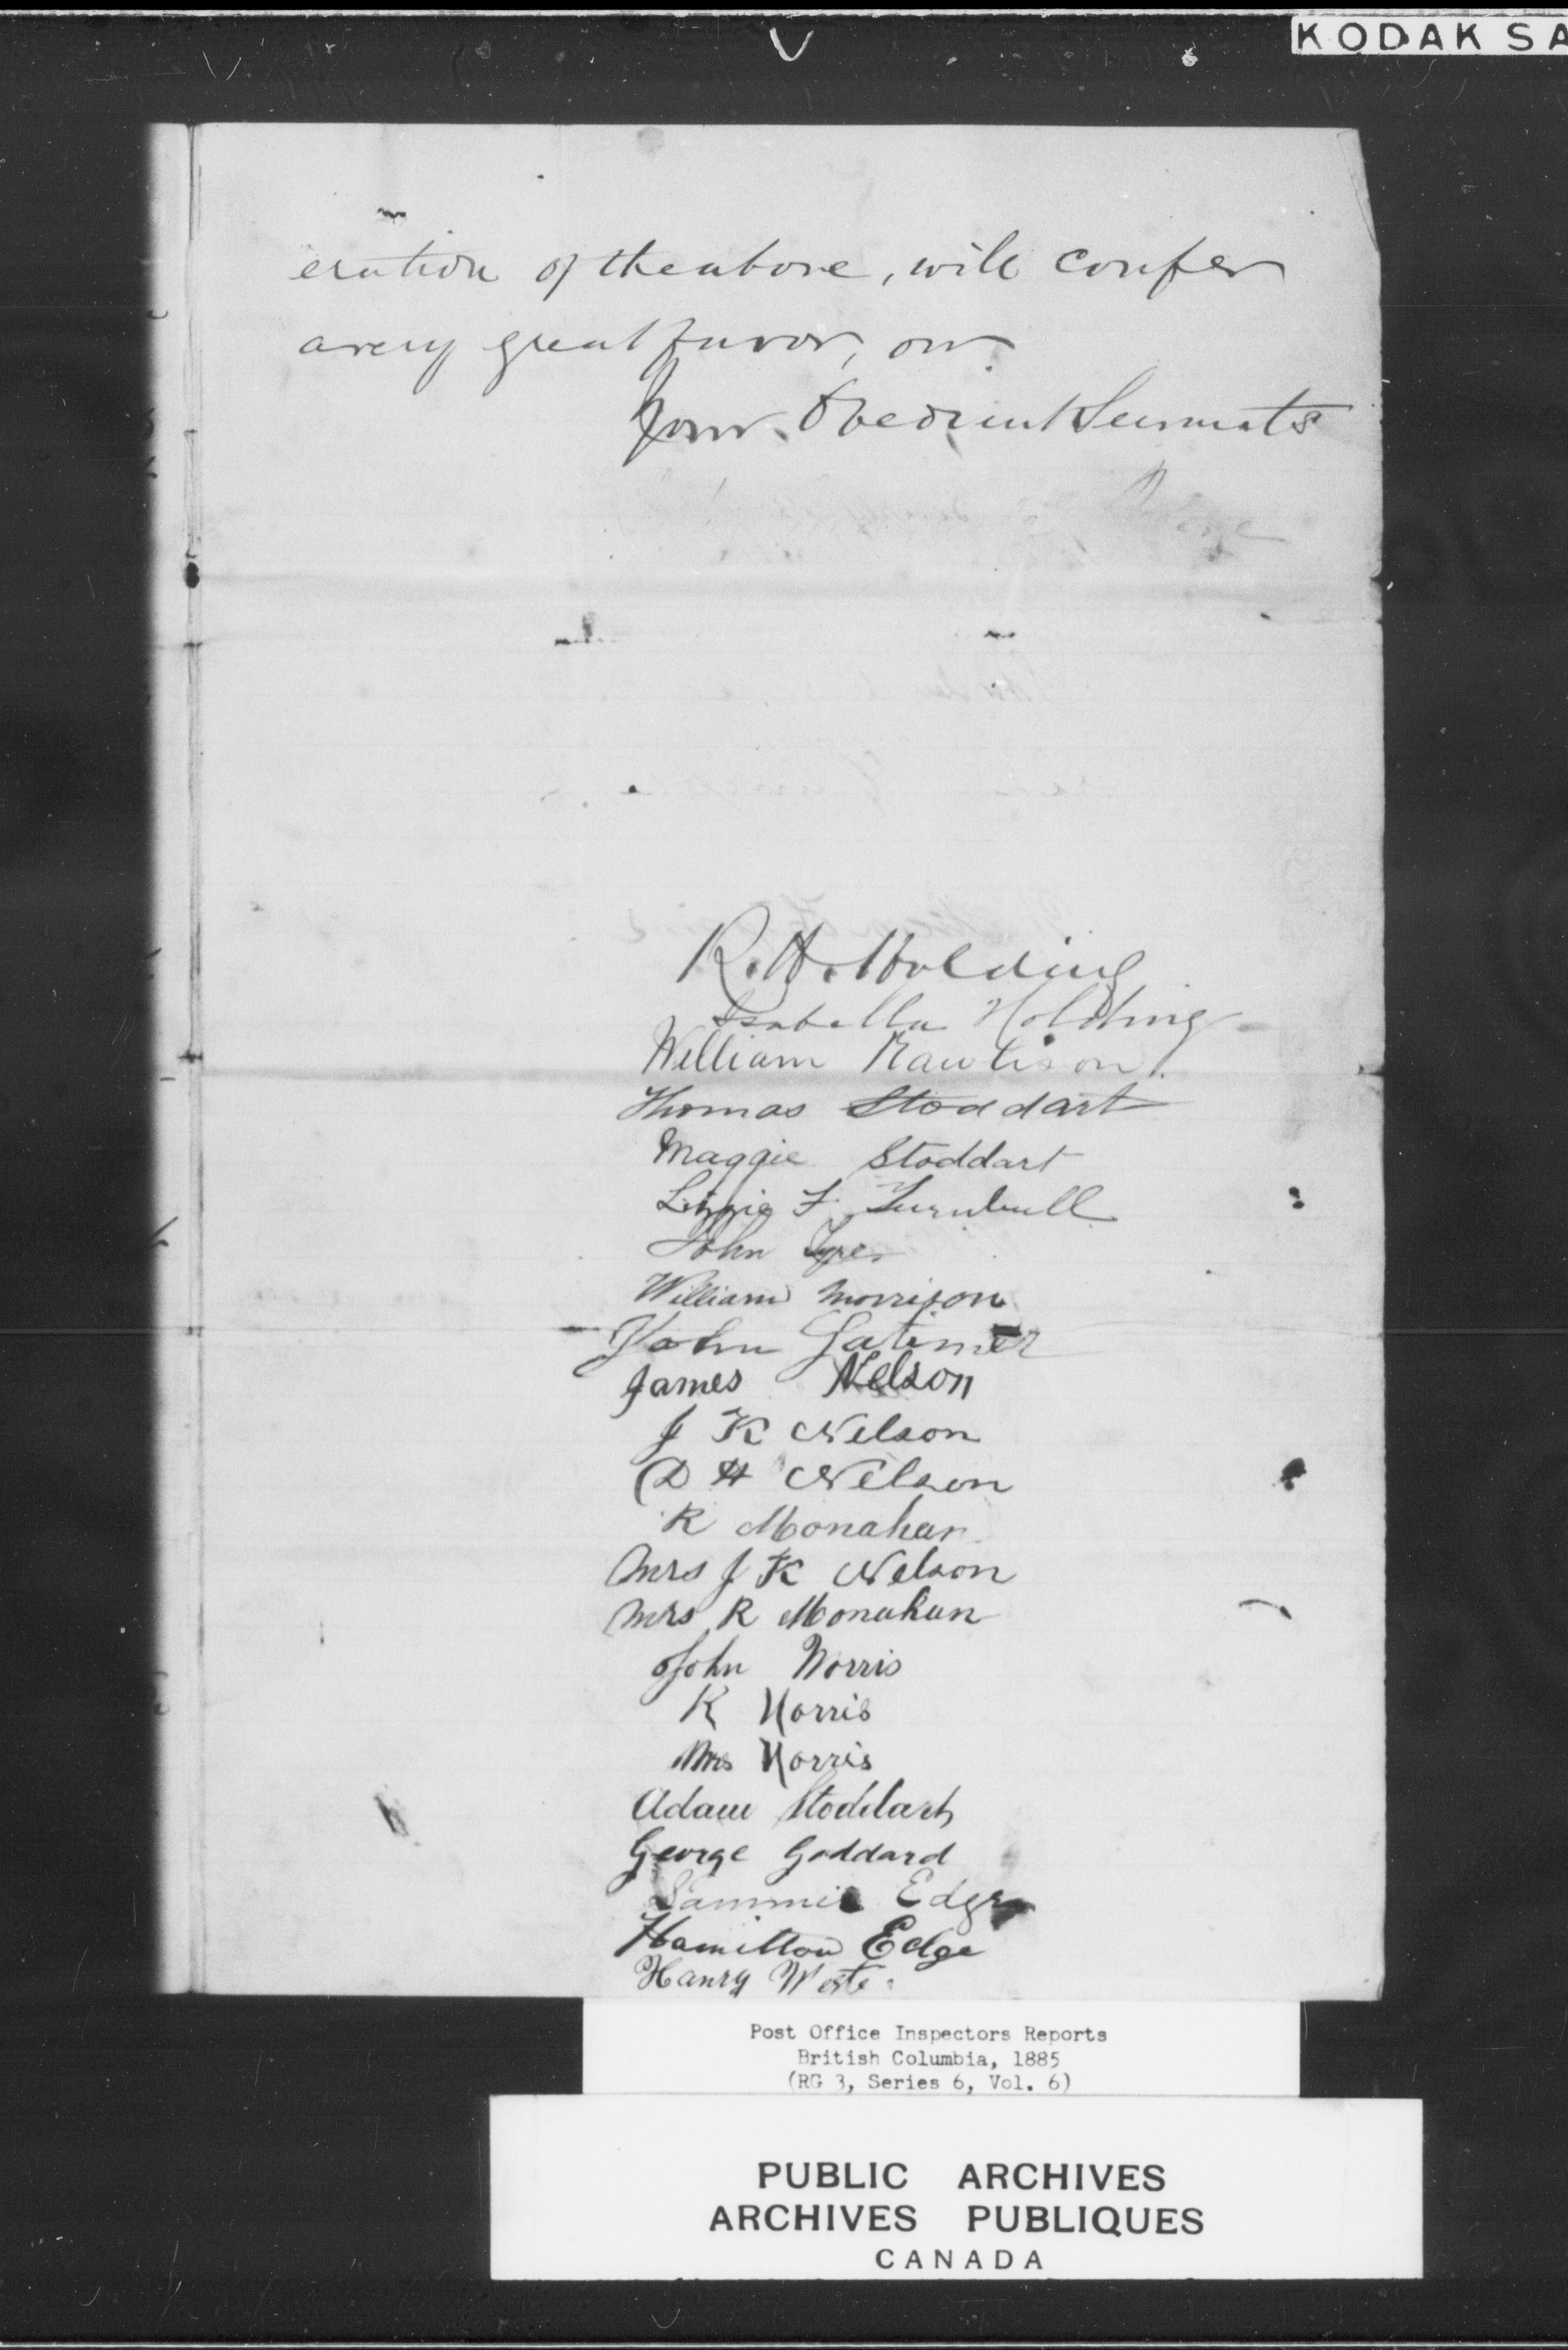 KODAK SA
eration of the above, will confer
a very great favor, on
Your Obedient Servants
R. H. Holding
Isabella Holding
William Rawlison
Thomas Stoddart
Maggie Stoddart
Lizzie F. Turnbull
John Tyre
William Morrison
John Latimer
James Nelson
J K Nelson
D H Nelson
R Monahan
Mrs J K Nelson
Mrs R Monahan
John Norris
K Norris
Mrs Norris
Adam Stoddart
George Goddard
Sammie Edge
Hamilton Edge
Hanry
Post Office Inspectors Reports
British Columbia, 1885
(RG 3, Series 6, Vol. 6)
PUBLIC ARCHIVES
ARCHIVES PUBLIQUES
CANADA